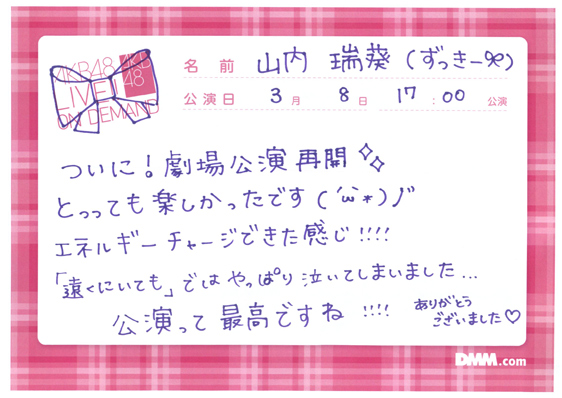 AKB48
LIVE!!
ON DEMAND
AKB
48
名前 山内 瑞葵(ずっきー)
公演日 3月 8日 17:00 公演
ついに!劇場公演再開
とっっても楽しかったです(´ω`*)ノ"
エネルギーチャージできた感じ!!!!
「遠くにいても」ではやっぱり泣いてしまいました...
公演って最高ですね !!!!
ありがとう
ございました♡
DMM.com